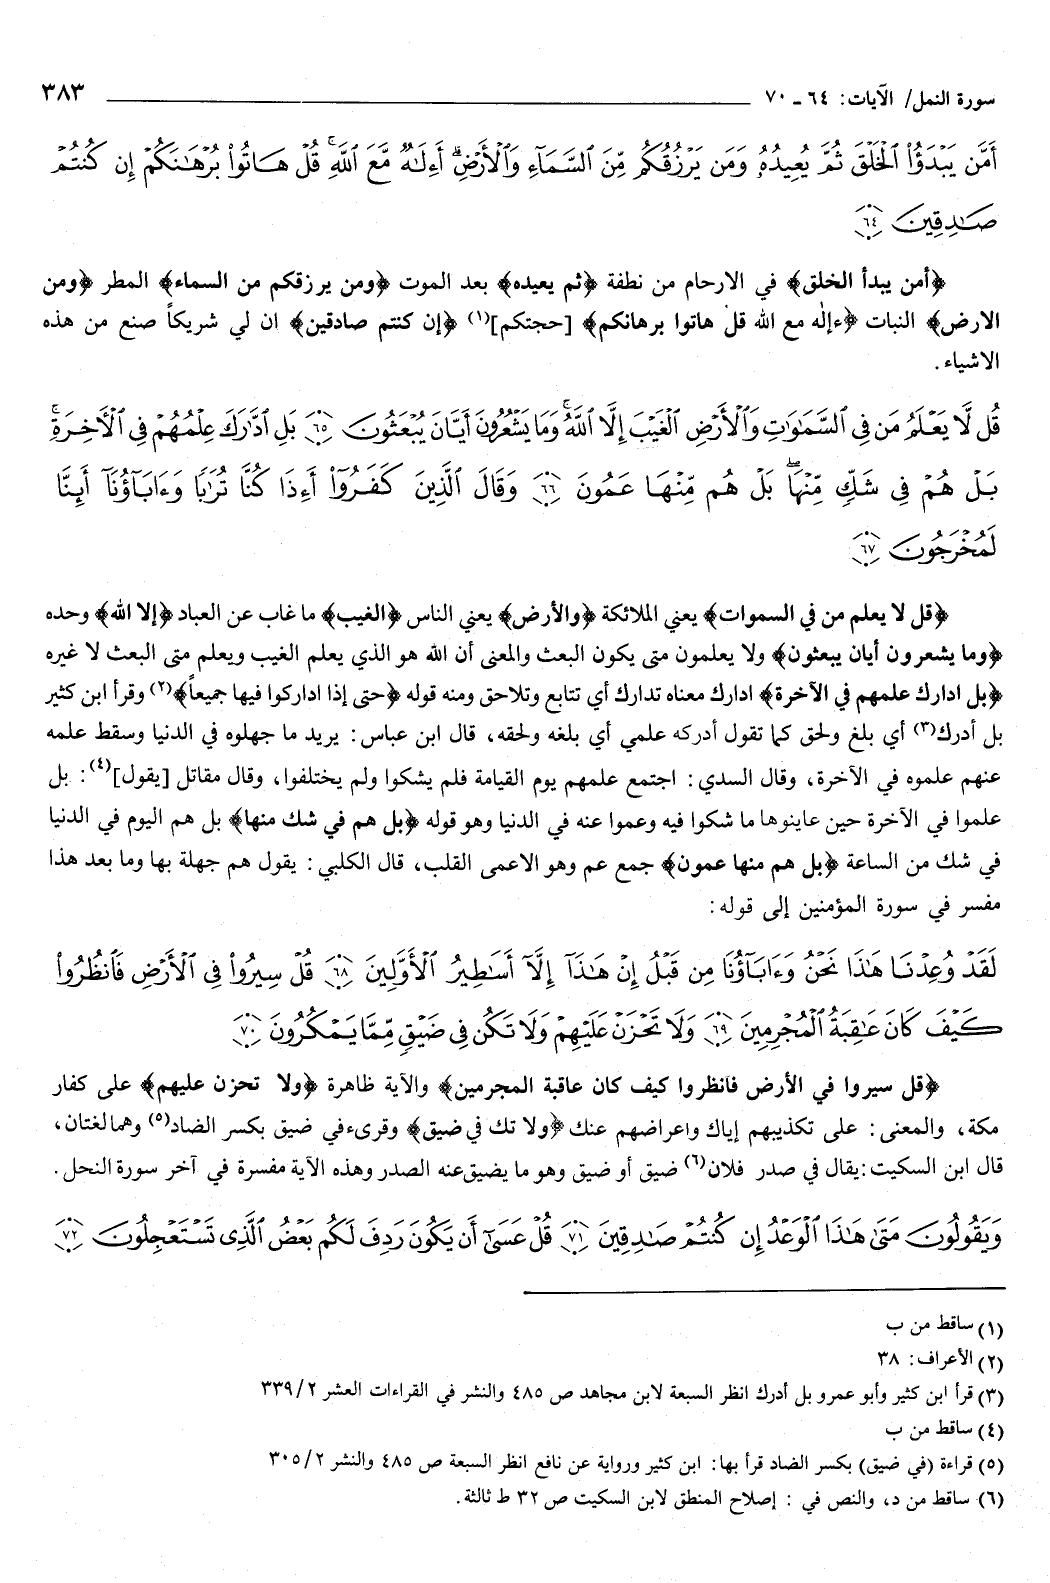 سورة النمل/ الآيات: ٦٤ - ٧٠ ٣٨٣
أَمَّن يَبْدَؤُا۟ ٱلْخَلْقَ ثُمَّ يُعِيدُهُۥ وَمَن يَرْزُقُكُم مِّنَ ٱلسَّمَآءِ وَٱلْأَرْضِ ۗ أَءِلَٰهٌ مَّعَ ٱللَّهِ ۚ قُلْ هَاتُوا۟ بُرْهَٰنَكُمْ إِن كُنتُمْ
صَٰدِقِينَ ٦٤
﴿أمن يبدأ الخلق﴾ في الارحام من نطفة ﴿ثم يعيده﴾ بعد الموت ﴿ومن يرزقكم من السماء﴾ المطر ﴿ومن
الارض﴾ النبات ﴿ءإلٰه مع الله قل هاتوا برهانكم﴾ [حجتكم](١) ﴿إن كنتم صادقين﴾ ان لي شريكاً صنع من هذه
الاشياء.
قُل لَّا يَعْلَمُ مَن فِى ٱلسَّمَٰوَٰتِ وَٱلْأَرْضِ ٱلْغَيْبَ إِلَّا ٱللَّهُ ۚ وَمَا يَشْعُرُونَ أَيَّانَ يُبْعَثُونَ ٦٥ بَلِ ٱدَّٰرَكَ عِلْمُهُمْ فِى ٱلْـَٔاخِرَةِ ۚ
بَلْ هُمْ فِى شَكٍّ مِّنْهَا ۖ بَلْ هُم مِّنْهَا عَمُونَ ٦٦ وَقَالَ ٱلَّذِينَ كَفَرُوٓا۟ أَءِذَا كُنَّا تُرَٰبًا وَءَابَآؤُنَآ أَئِنَّا
لَمُخْرَجُونَ ٦٧
﴿قل لا يعلم من في السموات﴾ يعني الملائكة ﴿والأرض﴾ يعني الناس ﴿الغيب﴾ ما غاب عن العباد ﴿إلا الله﴾ وحده
﴿وما يشعرون أيان يبعثون﴾ ولا يعلمون متى يكون البعث والمعنى أن الله هو الذي يعلم الغيب ويعلم متى البعث لا غيره
﴿بل ادارك علمهم في الآخرة﴾ ادارك معناه تدارك أي تتابع وتلاحق ومنه قوله ﴿حتى إذا اداركوا فيها جميعاً﴾(٢) وقرأ ابن كثير
بل أدرك(٣) أي بلغ ولحق كما تقول أدركه علمي أي بلغه ولحقه، قال ابن عباس: يريد ما جهلوه في الدنيا وسقط علمه
عنهم علموه في الآخرة، وقال السدي: اجتمع علمهم يوم القيامة فلم يشكوا ولم يختلفوا، وقال مقاتل [يقول](٤): بل
علموا في الآخرة حين عاينوها ما شكوا فيه وعموا عنه في الدنيا وهو قوله ﴿بل هم في شك منها﴾ بل هم اليوم في الدنيا
في شك من الساعة ﴿بل هم منها عمون﴾ جمع عم وهو الاعمى القلب، قال الكلبي: يقول هم جهلة بها وما بعد هذا
مفسر في سورة المؤمنين إلى قوله:
لَقَدْ وُعِدْنَا هَٰذَا نَحْنُ وَءَابَآؤُنَا مِن قَبْلُ إِنْ هَٰذَآ إِلَّآ أَسَٰطِيرُ ٱلْأَوَّلِينَ ٦٨ قُلْ سِيرُوا۟ فِى ٱلْأَرْضِ فَٱنظُرُوا۟
كَيْفَ كَانَ عَٰقِبَةُ ٱلْمُجْرِمِينَ ٦٩ وَلَا تَحْزَنْ عَلَيْهِمْ وَلَا تَكُن فِى ضَيْقٍ مِّمَّا يَمْكُرُونَ ٧٠
﴿قل سيروا في الأرض فانظروا كيف كان عاقبة المجرمين﴾ والآية ظاهرة ﴿ولا تحزن عليهم﴾ على كفار
مكة، والمعنى: على تكذيبهم إياك واعراضهم عنك ﴿ولا تك في ضيق﴾ وقرىء في ضيق بكسر الضاد(٥) وهما لغتان،
قال ابن السكيت: يقال في صدر فلان(٦) ضيق أو ضيق وهو ما يضيق عنه الصدر وهذه الآية مفسرة في آخر سورة النحل.
وَيَقُولُونَ مَتَىٰ هَٰذَا ٱلْوَعْدُ إِن كُنتُمْ صَٰدِقِينَ ٧١ قُلْ عَسَىٰٓ أَن يَكُونَ رَدِفَ لَكُم بَعْضُ ٱلَّذِى تَسْتَعْجِلُونَ ٧٢
(١) ساقط من ب
(٢) الأعراف: ٣٨
(٣) قرأ ابن كثير وأبو عمرو بل أدرك انظر السبعة لابن مجاهد ص ٤٨٥ والنشر في القراءات العشر ٢/ ٣٣٩
(٤) ساقط من ب
(٥) قراءة (في ضيق) بكسر الضاد قرأ بها: ابن كثير ورواية عن نافع انظر السبعة ص ٤٨٥ والنشر ٢/ ٣٠٥
(٦) ساقط من د، والنص في : إصلاح المنطق لابن السكيت ص ٣٢ ط ثالثة.